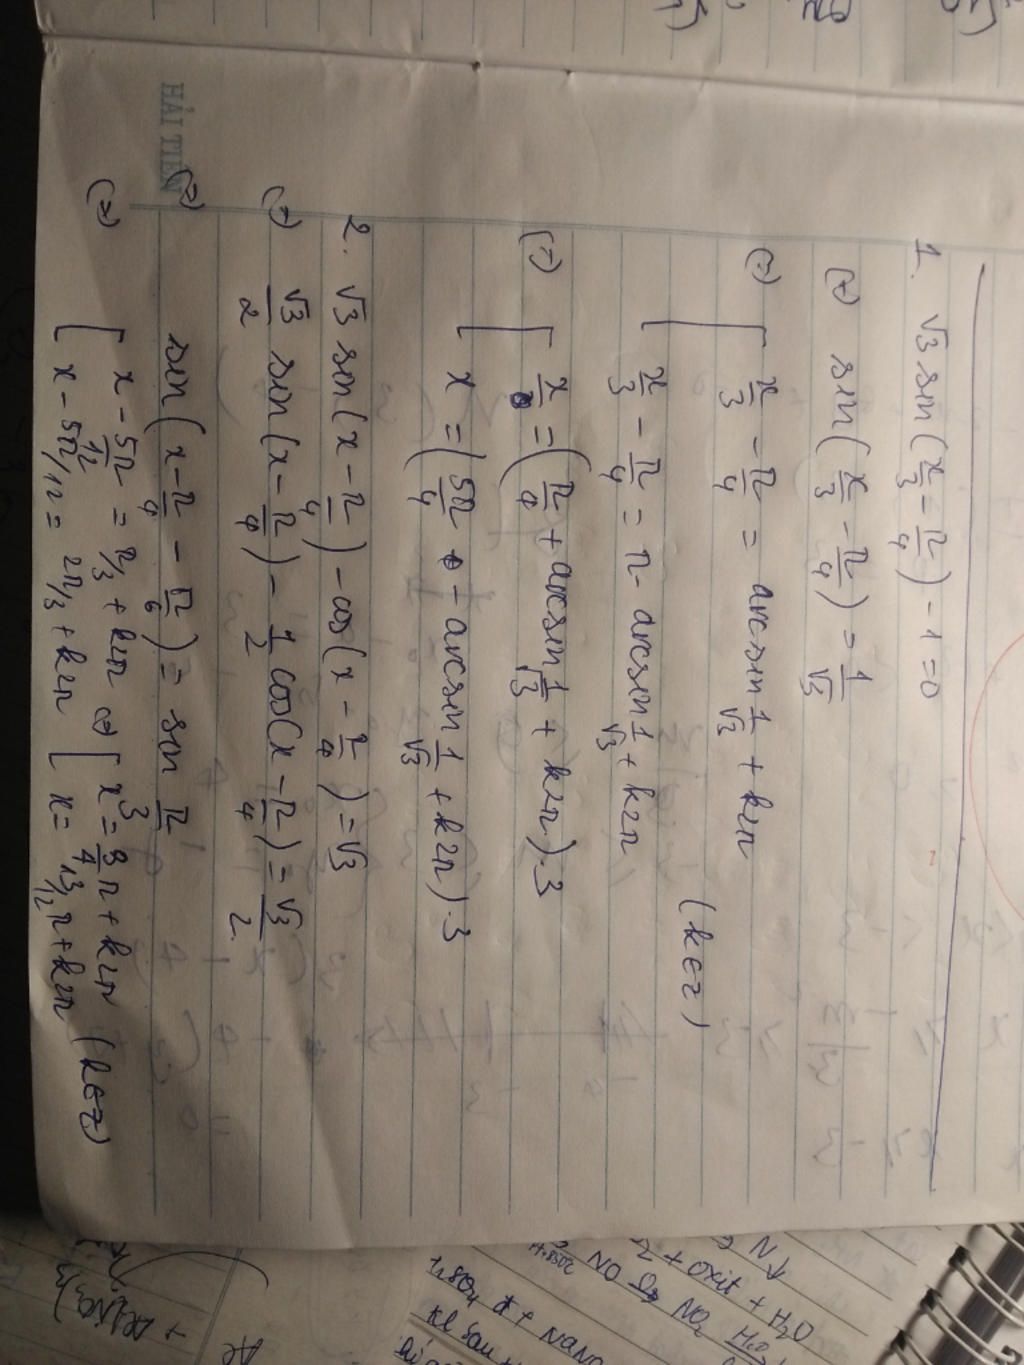 HẢI TIẾN
1. √3 sin(x/3 - π/4) - 1 = 0
(=) sin(x/3 - π/4) = 1/√3
(=) [ x/3 - π/4 = arcsin 1/√3 + k2π
x/3 - π/4 = π - arcsin 1/√3 + k2π
(k∈Z)
(=) [ x/3 = (π/4 + arcsin 1/√3 + k2π).3
x = (5π/4 - arcsin 1/√3 + k2π).3
2. √3 sin(x - π/4) - cos(x - π/4) = √3
(=) √3/2 sin(x - π/4) - 1/2 cos(x - π/4) = √3/2
(=) sin(x - π/4 - π/6) = sin π/3
(=) [ x - 5π/12 = π/3 + k2π (=) [ x = 3/4 π + k2π
x - 5π/12 = 2π/3 + k2π [ x = 13/12 π + k2π (k∈Z)
N↓
+ oxit + H2O
NO → NO2
H2SO4
+ NaNO
KL sau